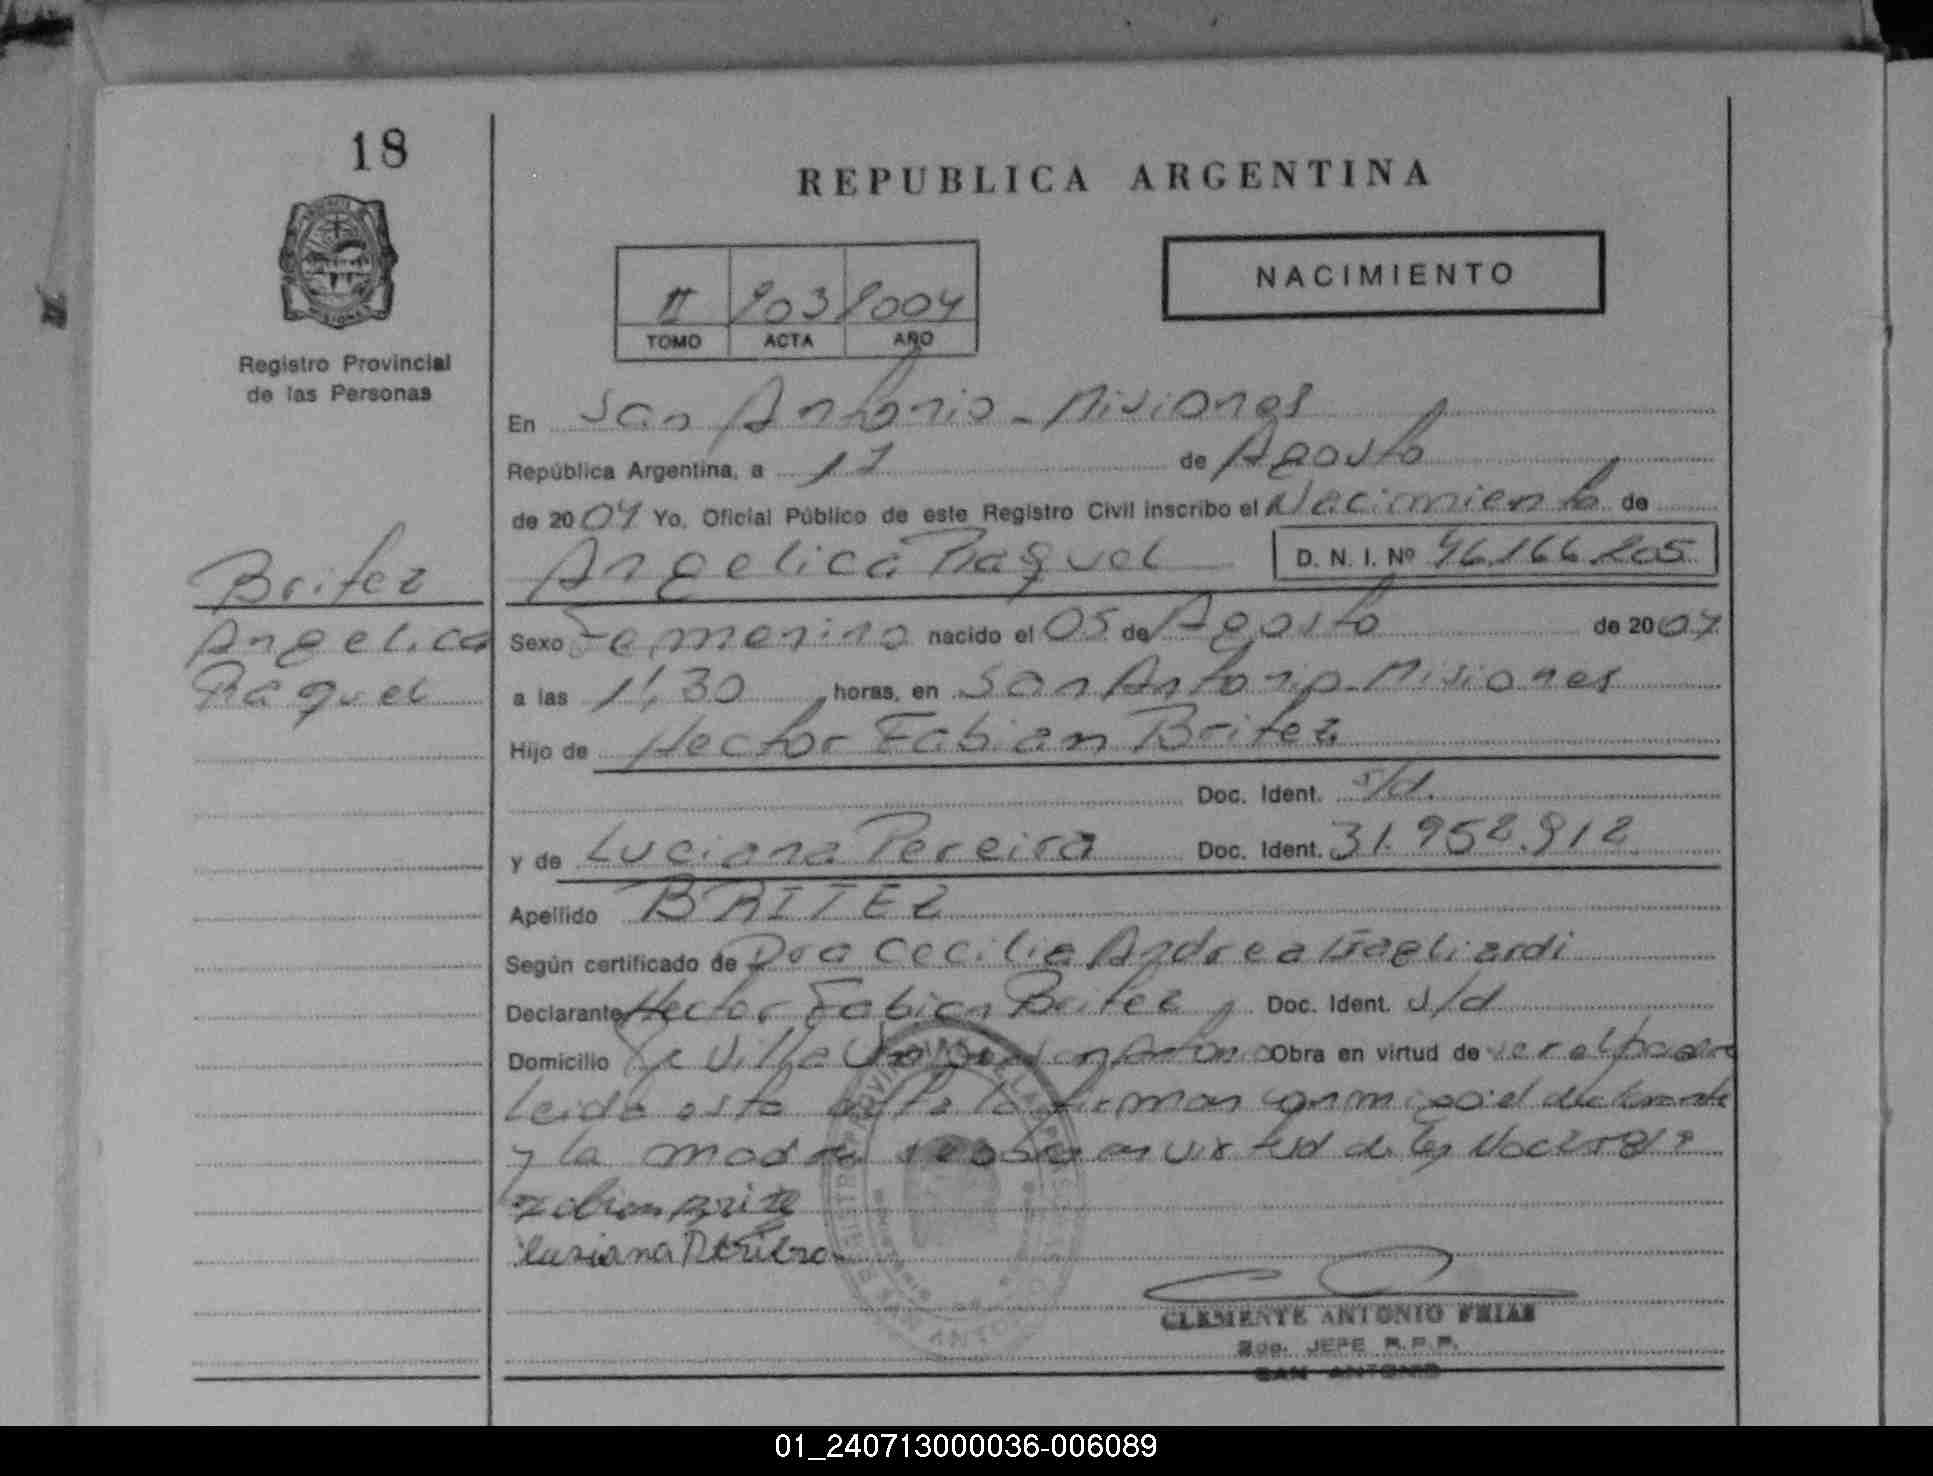 18
REPUBLICA ARGENTINA
NACIMIENTO
II 203 2004
TOMO ACTA AÑO
Registro Provincial
de las Personas
En San Antonio - Misiones
República Argentina, a 11 de Agosto
de 2004 Yo, Oficial Público de este Registro Civil inscribo el Nacimiento de
Angelica Raquel D. N. I. Nº 46.166.205
Britez
Angelica
Raquel
Sexo Femenino nacido el 05 de Agosto de 2004
a las 11,30 horas, en San Antonio - Misiones
Hijo de Hector Fabian Britez
Doc. Ident. s/d.
y de Luciana Pereira Doc. Ident. 31.952.912
Apellido BRITEZ
Según certificado de Dra Cecilia Andrea Gagliardi
Declarante Hector Fabian Britez Doc. Ident. s/d
Domicilio Villa San Antonio Obra en virtud de ser el padre
Leida esta acta la firman conmigo el declarante
y la madre en virtud de Ley Nac
Fabian Brite
CLEMENTE ANTONIO FRIAS
2do. JEFE R.P.P.
SAN ANTONIO
01_240713000036-006089